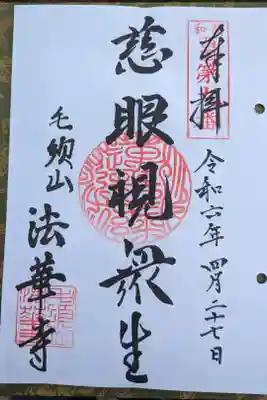 奉拝
令和六年四月二十七日
慈眼視衆生
七須山
法華寺